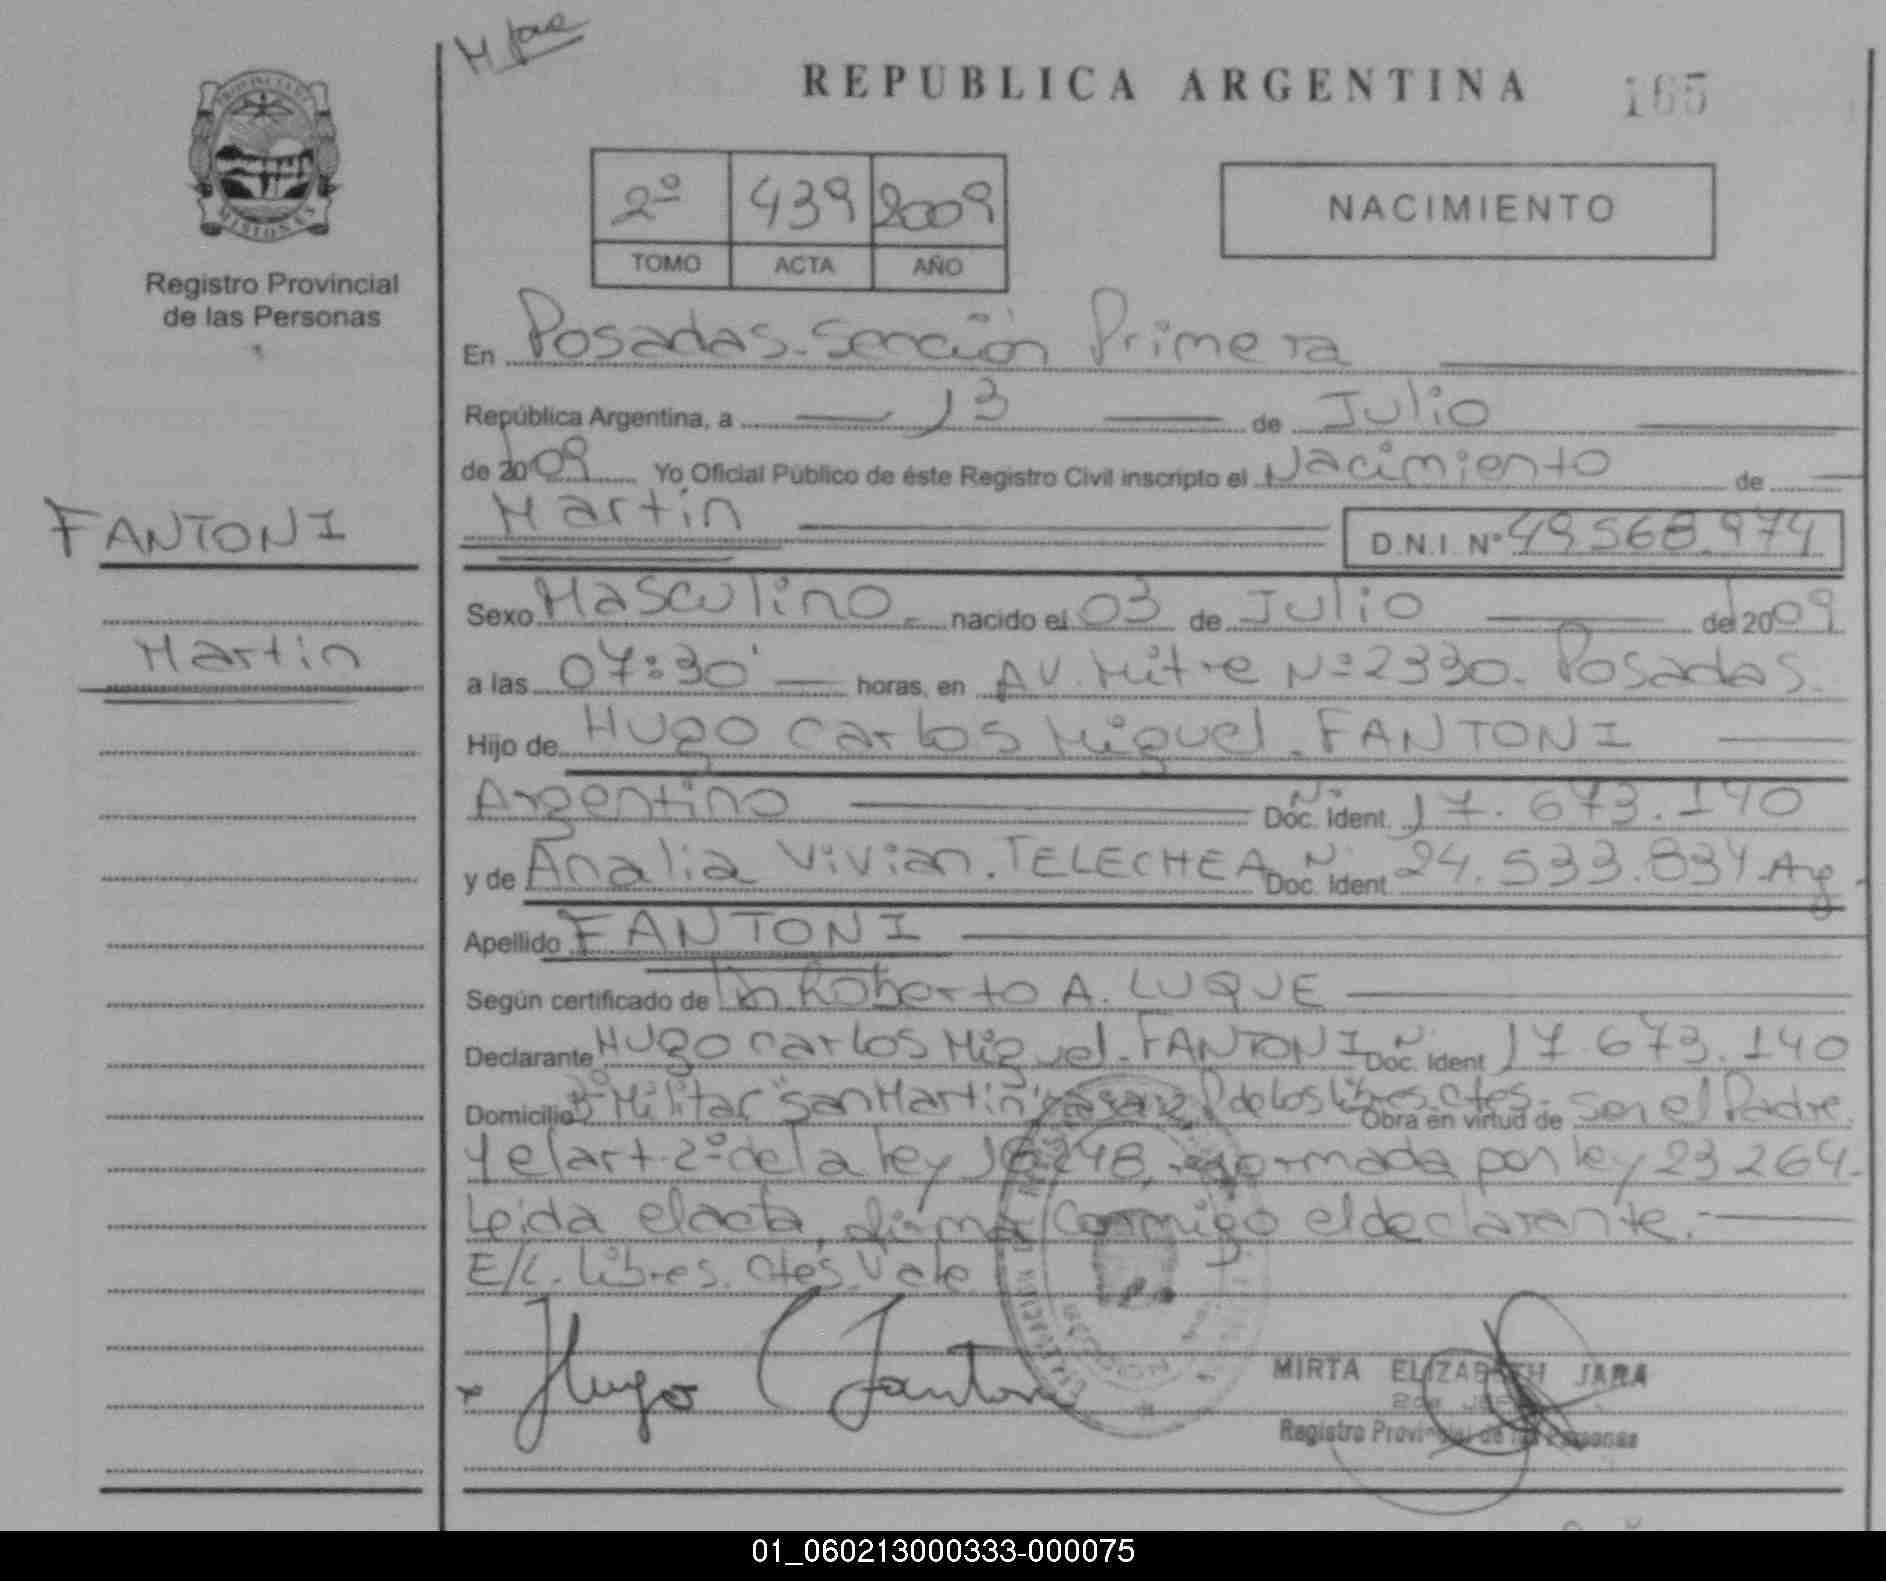 REPUBLICA ARGENTINA
165
PROVINCIA DE
MISIONES
Registro Provincial
de las Personas
2º 439 2009
TOMO ACTA AÑO
NACIMIENTO
En Posadas. Sección Primera
República Argentina, a 13 de Julio
de 2009 Yo Oficial Público de éste Registro Civil inscripto el Nacimiento de
Martin D.N.I. Nº 49568.974
FANTONI
Martin
Sexo Masculino. nacido el 03 de Julio del 2009
a las 07:30' horas, en AV. Mitre Nº 2330. Posadas.
Hijo de Hugo Carlos Miguel. FANTONI
Argentino Doc. Ident. Nº 17.673.140
y de Analia Vivian. TELECHEA Doc. Ident. Nº 24.533.834 Arg.
Apellido FANTONI
Según certificado de Dr. Roberto A. LUQUE
Declarante Hugo Carlos Miguel. FANTONI Doc. Ident Nº 17.673.140
Domicilio Bº Militar "San Martin" P. de los Libres. Ctes. Obra en virtud de ser el Padre.
y el art. 2º de la ley 18248, reformada por ley 23264.
Leida el acta, firma conmigo el declarante.
E/L. Libres. Ctes. Vale.
x Hugo C Fantoni
MIRTA ELIZABETH JARA
Registro Provincial de las Personas
01_060213000333-000075